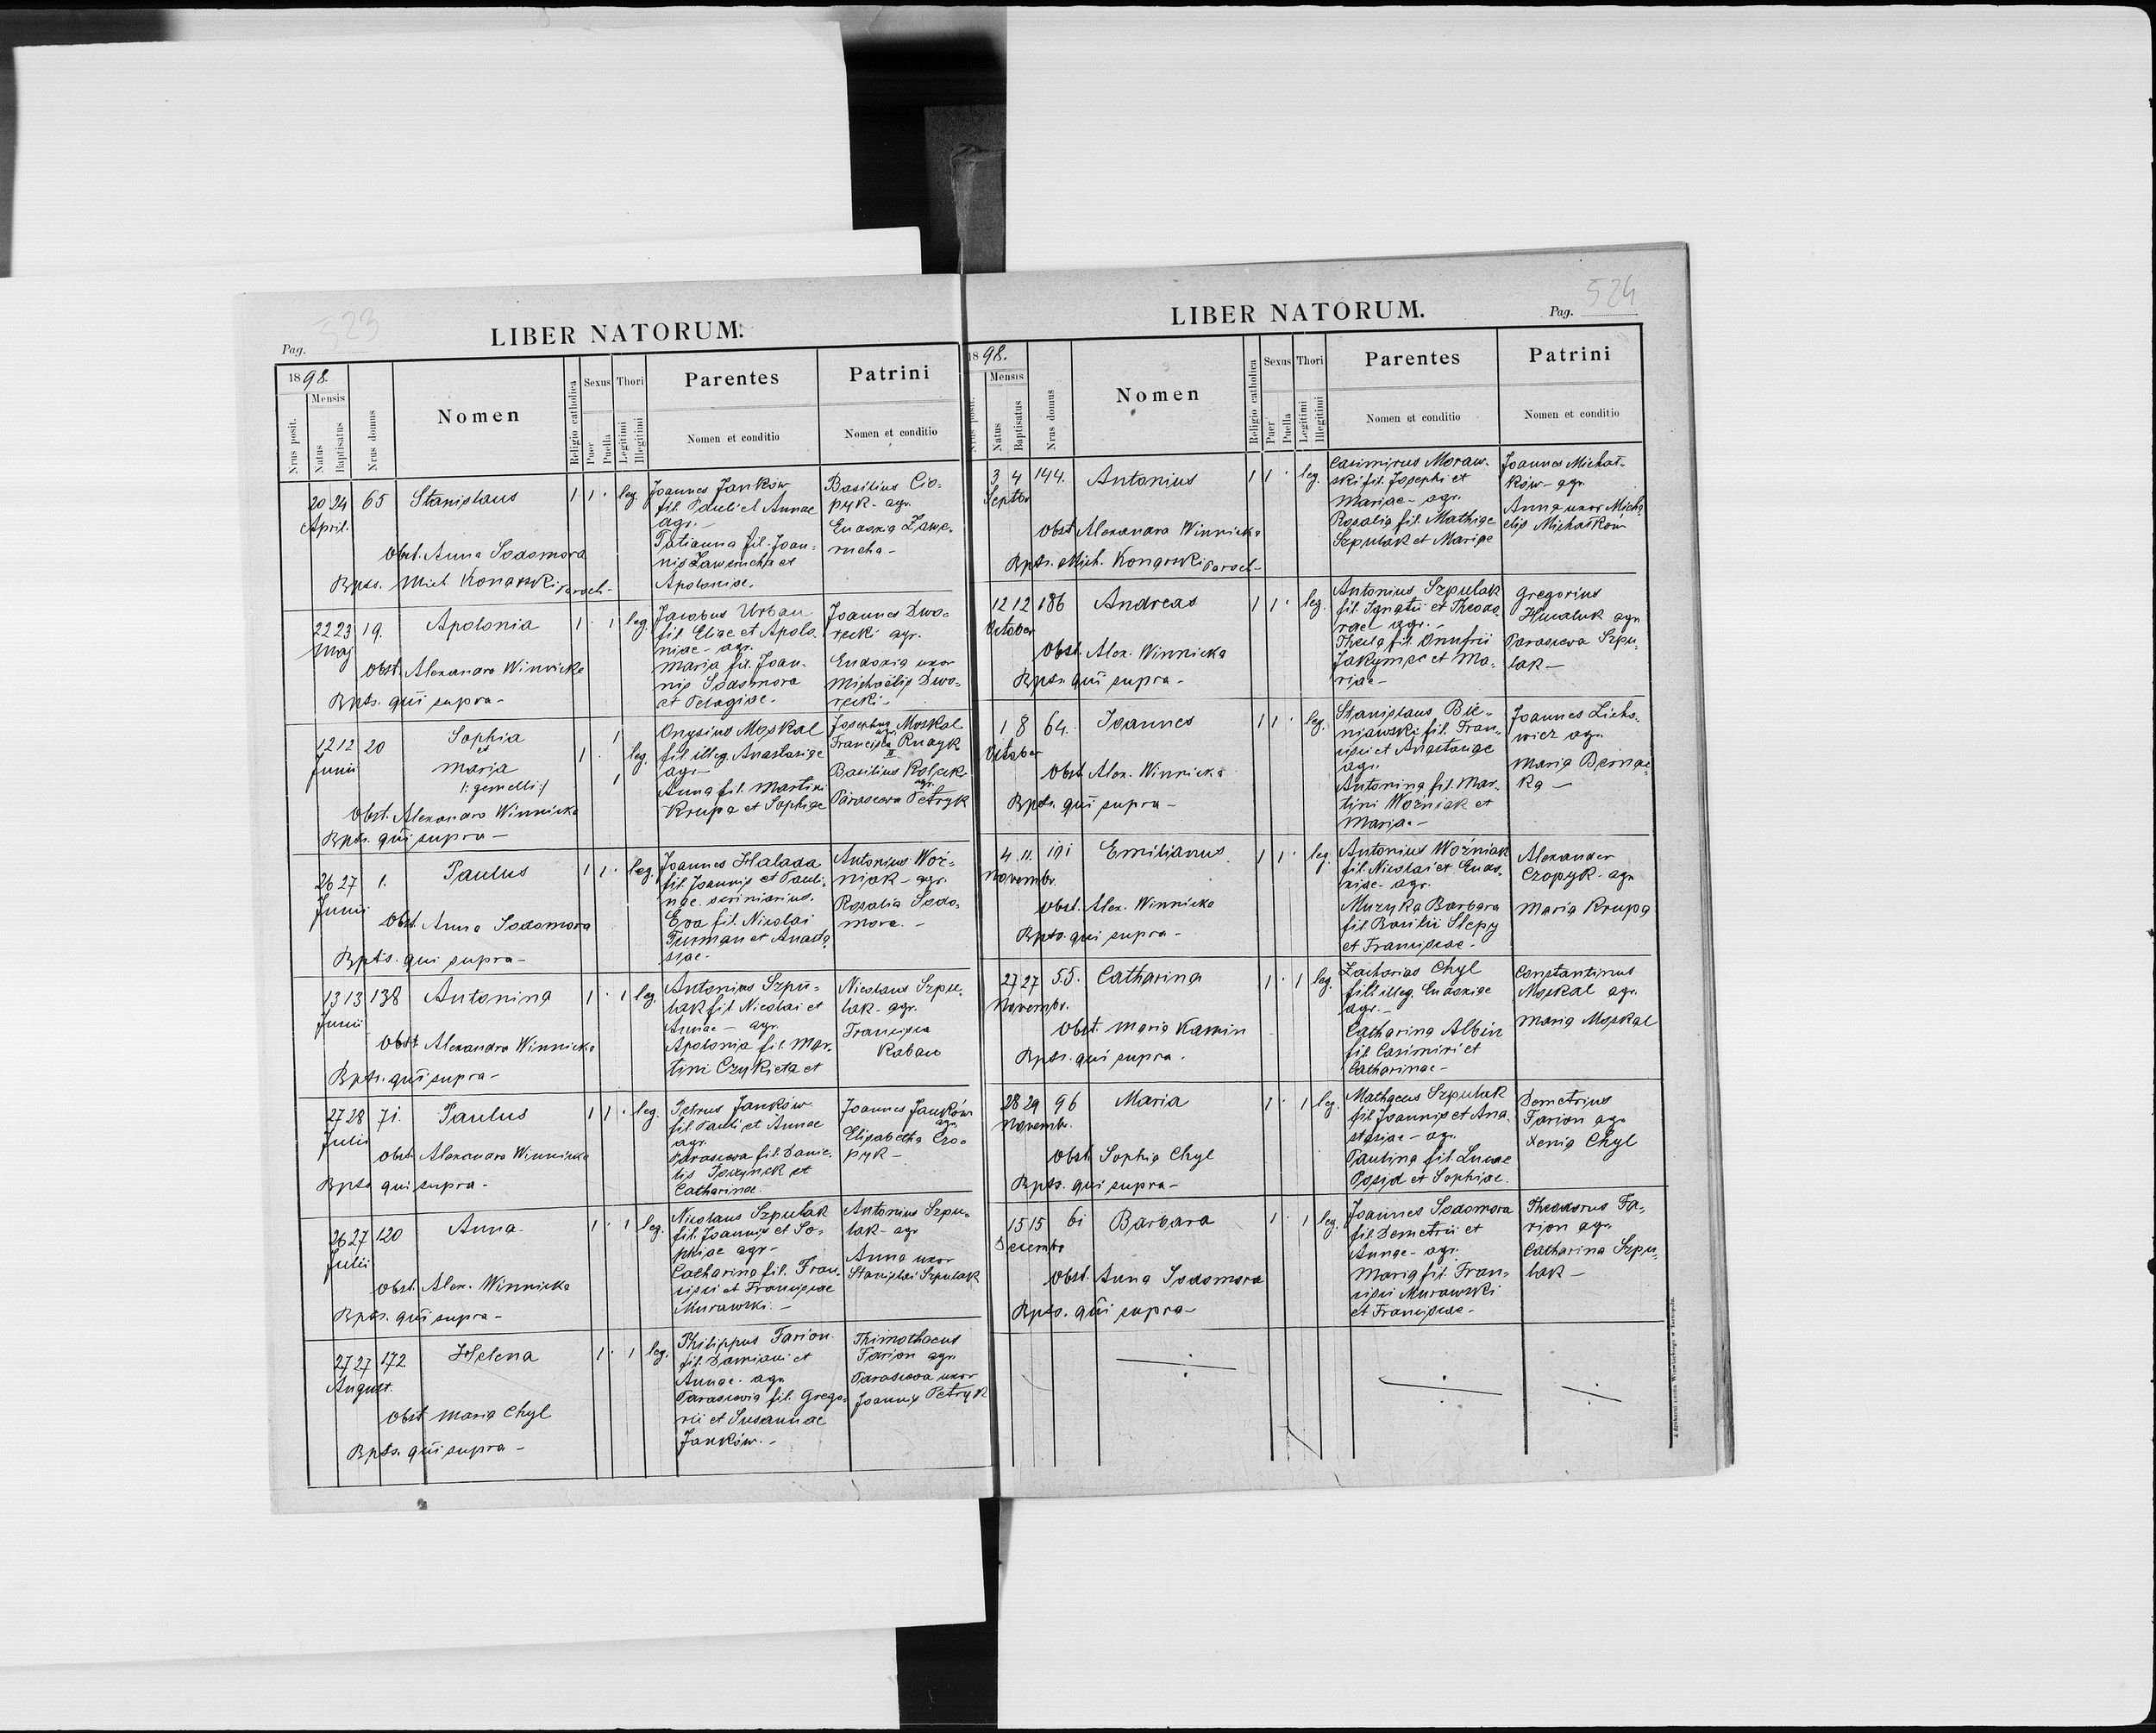 523
Pag.
LIBER NATORUM.
1898.
Mensis
Nrus posit.
Natus
Baptisatus
Nrus domus
Nomen
Religio catholica
Sexus
Puer
Puella
Thori
Legitimi
Illegitimi
Parentes
Nomen et conditio
Patrini
Nomen et conditio
20 24 65 Stanislaus 1 1 · leg.
April.
Obst. Anna Sodomora
Bpts. Mich Konarski Paroch-
Joannes Janków
fil. Pauli et Annae
agr. -
Tatianna fil. Joan-
nis Zawerucha et
Apoloniae.
Basilius Cio-
pyk - agr.
Eudoxia Zawe-
rucha -
22 23 19. Apolonia 1 · 1 leg.
Maj
Obst. Alexandra Winnicka
Bpts. qui supra -
Jacobus Urban
fil. Eliae et Apolo-
niae - agr.
Maria fil. Joan-
nis Sodomora
et Pelagiae.
Joannes Dwo-
recki agr.
Eudoxia uxor
Michaëlis Dwo-
recki -
12 12 20 Sophia 1
et
Junii Maria 1 · leg.
/: gemelli :/ 1
Obst. Alexandra Winnicka
Bpts. qui supra -
Onysius Moskal
fil. illeg. Anastasiae
agr -
Anna fil. Martini
Krupa et Sophiae
Josephus Moskal
agr.
Francisca Rudyk
II
Basilius
agr.
Parascewa Petryk
26 27 1. Paulus 1 1 · leg.
Junii
Obst. Anna Sodomora
Bpts. qui supra -
Joannes Halada
fil. Joannis et Pauli-
nae. scriniarius.
Eva fil. Nicolai
Furman et Anasta-
siae -
Antonius Woź-
niak - agr.
Rosalia Sodo-
mora. -
13 13 138 Antonina 1 · 1 leg.
Junii
Obst. Alexandra Winnicka
Bpts. qui supra -
Antonius Szpu-
lak fil. Nicolai et
Annae - agr.
Apolonia fil. Mar-
tini Czykieta et
Nicolaus Szpu-
lak - agr.
Francisca
Kaban
27 28 71. Paulus 1 1 · leg.
Julii
Obst. Alexandra Winnicka
Bpts qui supra -
Petrus Janków
fil. Pauli et Annae
agr.
Parascewa fil. Danie-
lis et
Catharinae.
Joannes Janków
agr.
Elisabetha Czo-
pyk -
26 27 120 Anna 1 · 1 leg.
Julii
Obst. Alex. Winnicka
Bpts. qui supra -
Nicolaus Szpulak
fil. Joannis et So-
phiae agr -
Catharina fil. Fran-
cisci et Franciscae
Murawski. -
Antonius Szpu-
lak - agr
Anna uxor
Stanislai Szpulak
27 27 172 Helena 1 · 1 leg.
August.
Obst Maria Chyl
Bpts. qui supra -
Philippus Farion
fil. Damiani et
Annae - agr.
Parascevia fil. Grego-
rii et Susannae
Janków. -
Thimothaeus
Farion agr.
Parascewa uxor
Joannis Petryk
524
Pag.
LIBER NATORUM.
1898.
Mensis
Nrus posit.
Natus
Baptisatus
Nrus domus
Nomen
Religio catholica
Sexus
Puer
Puella
Thori
Legitimi
Illegitimi
Parentes
Nomen et conditio
Patrini
Nomen et conditio
3 4 144. Antonius 1 1 · leg.
Septbr
Obst Alexandra Winnicka
Bpts. Mich. Konarski Paroch-
Casimirus Moraw-
ski fil. Josephi et
Mariae - agr.
Rosalia fil. Mathiae
Szpulak et Mariae
Joannes Michał-
ków - agr.
Anna uxor Micha-
elis Michałków
12 12 186 Andreas 1 1 · leg.
October
Obst. Alex. Winnicka
Bpts. qui supra -
Antonius Szpulak
fil. Ignatii et Theodo-
rae agr. -
Thecla fil. Onufrii
Jakymec et Ma-
riae -
Gregorius
agr
Parascewa Szpu-
lak -
1 8 64. Joannes 1 1 · leg.
October
Obst Alex. Winnicka
Bpts. qui supra -
Stanislaus Bie-
niawski fil. Fran-
cisci et Anastasiae
agr.
Antonina fil. Mar-
tini Woźniak et
Mariae -
Joannes Licho-
wicz agr.
Maria
ka -
4 11. 171 Emilianus 1 1 · leg.
Novembr.
Obst. Alex. Winnicka
Bpts. qui supra -
Antonius Woźniak
fil. Nicolai et Eudo-
xiae - agr.
Muzyka Barbara
fil Basilii Slepy
et Franciscae -
Alexander
Czopyk - agr
Maria Krupa
27 27 55. Catharina 1 · 1 leg.
Novembr.
Obst. Maria Kamin
Bpts. qui supra.
Zacharias Chyl
fil. illeg. Eudoxiae
agr. -
Catharina Albin
fil. Casimiri et
Catharinae -
Constantinus
Moskal agr.
Maria Moskal
28 29 96 Maria 1 · 1 leg.
Novembr.
Obst. Sophia Chyl
Bpts. qui supra -
Mathaeus Szpulak
fil. Joannis et Ana-
stasiae - agr.
Paulina fil. Lucae
Posid et Sophiae.
Demetrius
Farion agr.
Xenia Chyl
15 15 61 Barbara 1 · 1 leg.
Decembr
Obst. Anna Sodomora
Bpts. qui supra -
Joannes Sodomora
fil. Demetrii et
Annae - agr.
Maria fil. Fran-
cisci Murawski
et Franciscae -
Theodorus Fa-
rion agr.
Catharina Szpu-
lak -